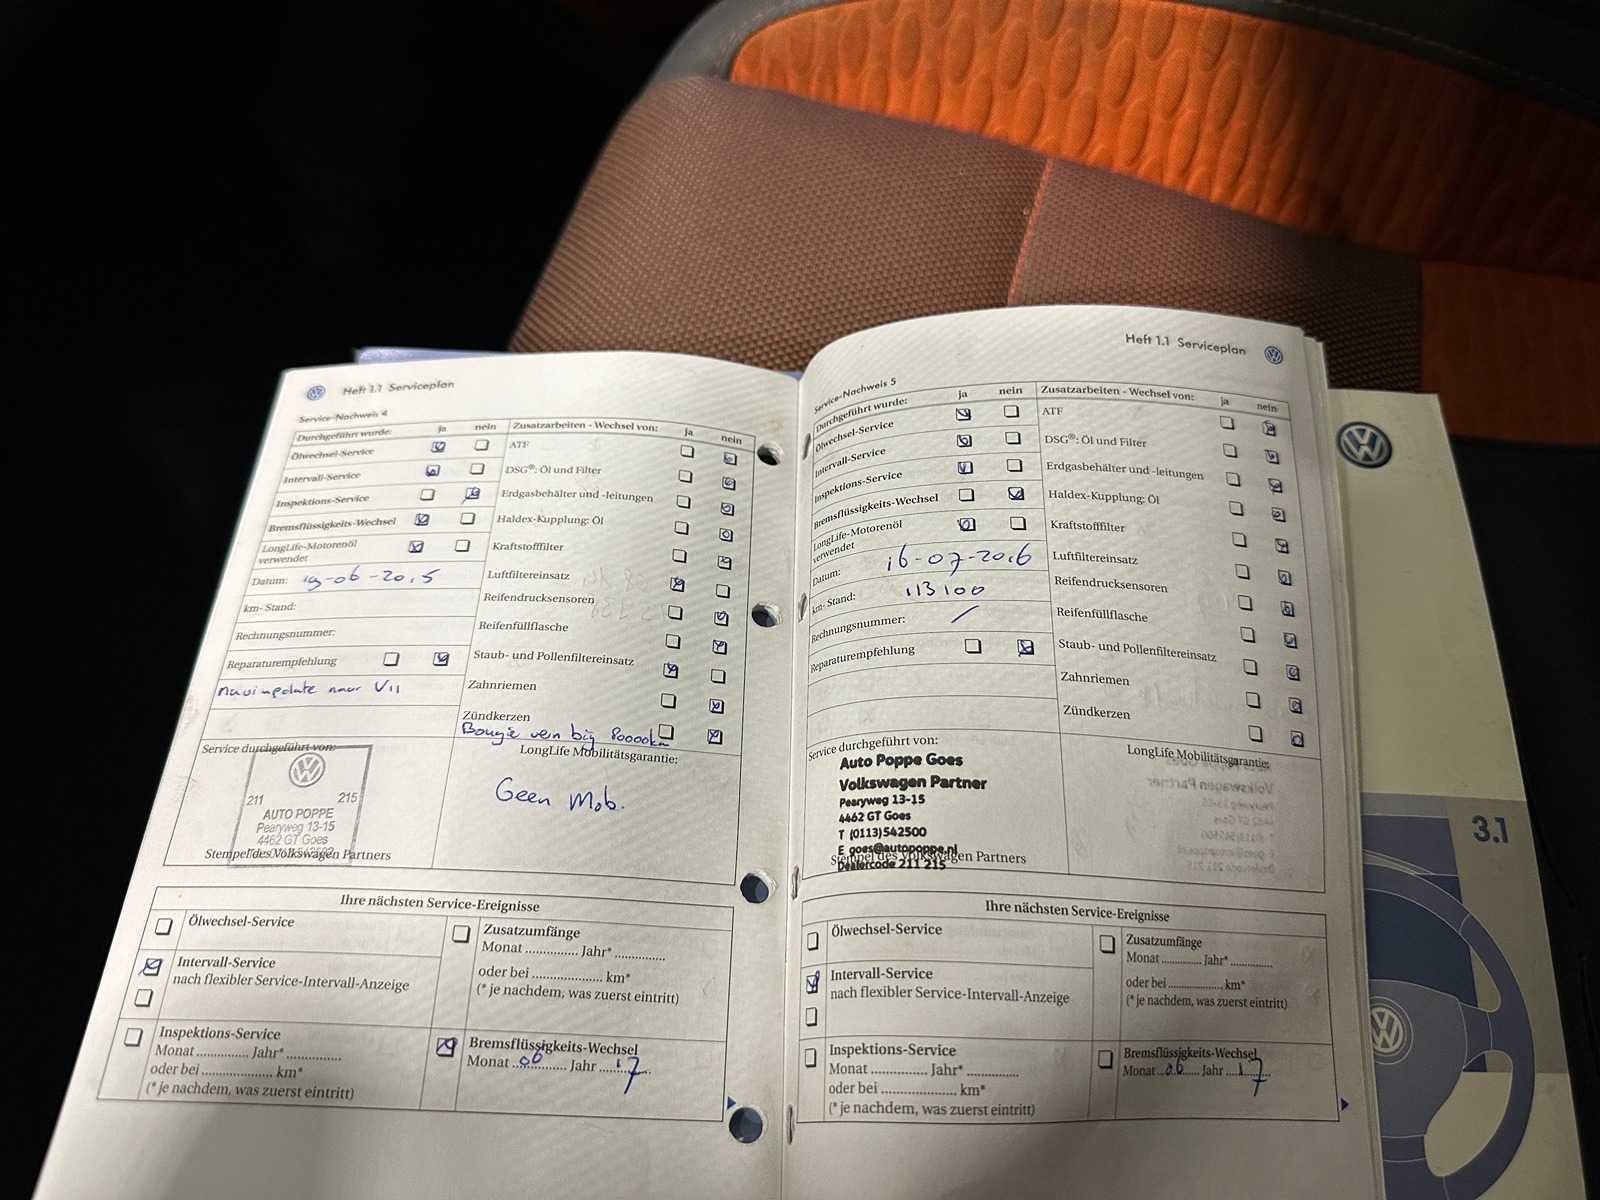 Heft 1.1 Serviceplan
Service-Nachweis 4
Durchgeführt wurde: ja nein
Ölwechsel-Service
Intervall-Service
Inspektions-Service
Bremsflüssigkeits-Wechsel
LongLife-Motorenöl
verwendet
Datum: 19-06-2015
km- Stand:
Rechnungsnummer:
Reparaturempfehlung
navi update naar V11
Zusatzarbeiten - Wechsel von: ja nein
ATF
DSG®: Öl und Filter
Erdgasbehälter und -leitungen
Haldex-Kupplung: Öl
Kraftstofffilter
Luftfiltereinsatz
Reifendrucksensoren
Reifenfüllflasche
Staub- und Pollenfiltereinsatz
Zahnriemen
Zündkerzen
Bougie vern big 80000km
Service durchgeführt von:
211 215
AUTO POPPE
Pearyweg 13-15
4462 GT Goes
Stempel des Volkswagen Partners
LongLife Mobilitätsgarantie:
Geen Mob.
Ihre nächsten Service-Ereignisse
Ölwechsel-Service
Intervall-Service
nach flexibler Service-Intervall-Anzeige
Inspektions-Service
Monat .............. Jahr* ..............
oder bei .................... km*
(* je nachdem, was zuerst eintritt)
Zusatzumfänge
Monat .............. Jahr* ..............
oder bei .................... km*
(* je nachdem, was zuerst eintritt)
Bremsflüssigkeits-Wechsel
Monat 06 Jahr 17
Heft 1.1 Serviceplan
Service-Nachweis 5
Durchgeführt wurde: ja nein
Ölwechsel-Service
Intervall-Service
Inspektions-Service
Bremsflüssigkeits-Wechsel
LongLife-Motorenöl
verwendet
Datum: 16-07-2016
km- Stand: 113100
Rechnungsnummer: /
Reparaturempfehlung
Zusatzarbeiten - Wechsel von: ja nein
ATF
DSG®: Öl und Filter
Erdgasbehälter und -leitungen
Haldex-Kupplung: Öl
Kraftstofffilter
Luftfiltereinsatz
Reifendrucksensoren
Reifenfüllflasche
Staub- und Pollenfiltereinsatz
Zahnriemen
Zündkerzen
Service durchgeführt von:
Auto Poppe Goes
Volkswagen Partner
Pearyweg 13-15
4462 GT Goes
T (0113)542500
E goes@autopoppe.nl
Stempel des Volkswagen Partners
Dealercode 211 215
LongLife Mobilitätsgarantie:
Ihre nächsten Service-Ereignisse
Ölwechsel-Service
Intervall-Service
nach flexibler Service-Intervall-Anzeige
Inspektions-Service
Monat .............. Jahr* ..............
oder bei .................... km*
(* je nachdem, was zuerst eintritt)
Zusatzumfänge
Monat .............. Jahr* ..............
oder bei .................... km*
(* je nachdem, was zuerst eintritt)
Bremsflüssigkeits-Wechsel
Monat 06 Jahr 17
3.1